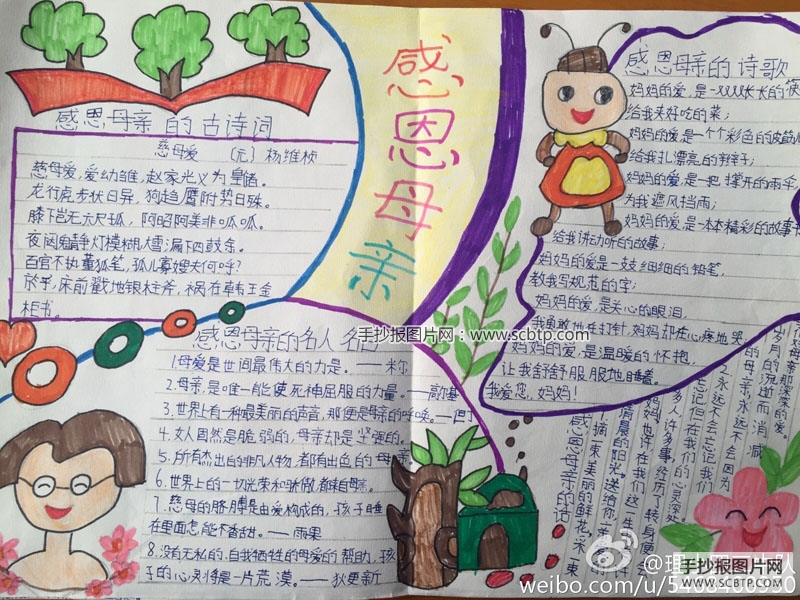 感恩母亲
感恩母亲的古诗词
慈母爱 (元) 杨维桢
慈母爱,爱幼雏,赵家光义为皇储。
龙行虎步状日异,狗趋鹰附势日殊。
膝下岂无六尺孤,阿昭阿美非呱呱。
夜闼鬼静灯模糊,大雪漏下四鼓余。
百官不执董狐笔,孤儿寡嫂夫何呼?
床前戳地银柱斧,祸在韩王金
柜书。
感恩母亲的名人名言
1.母爱是世间最伟大的力量。——米尔
2.母亲,是唯一能使死神屈服的力量。——高尔基
3.世界上有一种最美丽的声音,那便是母亲的呼唤。——但丁
4.女人固然是脆弱的,母亲却是坚强的。
5.所有杰出的非凡人物,都有出色的母亲
6.世界上的一切光荣和骄傲,都来自母亲。
7.慈母的胳膊是由爱构成的,孩子睡
在里面怎能不香甜。——雨果
8.没有无私的,自我牺牲的母爱的帮助,孩
子的心灵将是一片荒漠。——狄更斯
感恩母亲的诗歌
妈妈的爱,是一长长的
给我夹好吃的菜;
妈妈的爱,是一个个彩色的皮筋儿
给我扎漂亮的辫子;
妈妈的爱,是一把撑开的雨伞
为我遮风挡雨;
妈妈的爱,是一本本精彩的故事书
给我讲动听的故事;
妈妈的爱是一支细细的铅笔,
教我写规范的字;
妈妈的爱,是关心的眼泪,
我勇敢地在打针,妈妈却在心疼地哭
妈妈的爱,是温暖的怀抱,
让我舒舒服服地睡着。
我爱您,妈妈!
感恩母亲的话
摘一束美丽的鲜花,采一束
清晨的阳光,送给你
2.永远不会忘记我们
的母亲,永远不会因为
岁月的流逝而消减
母亲那深深的爱。
手抄报图片网:www.scbtp.com
weibo.com/u/5408400950
手抄报图片网
WWW.SCBTP.COM